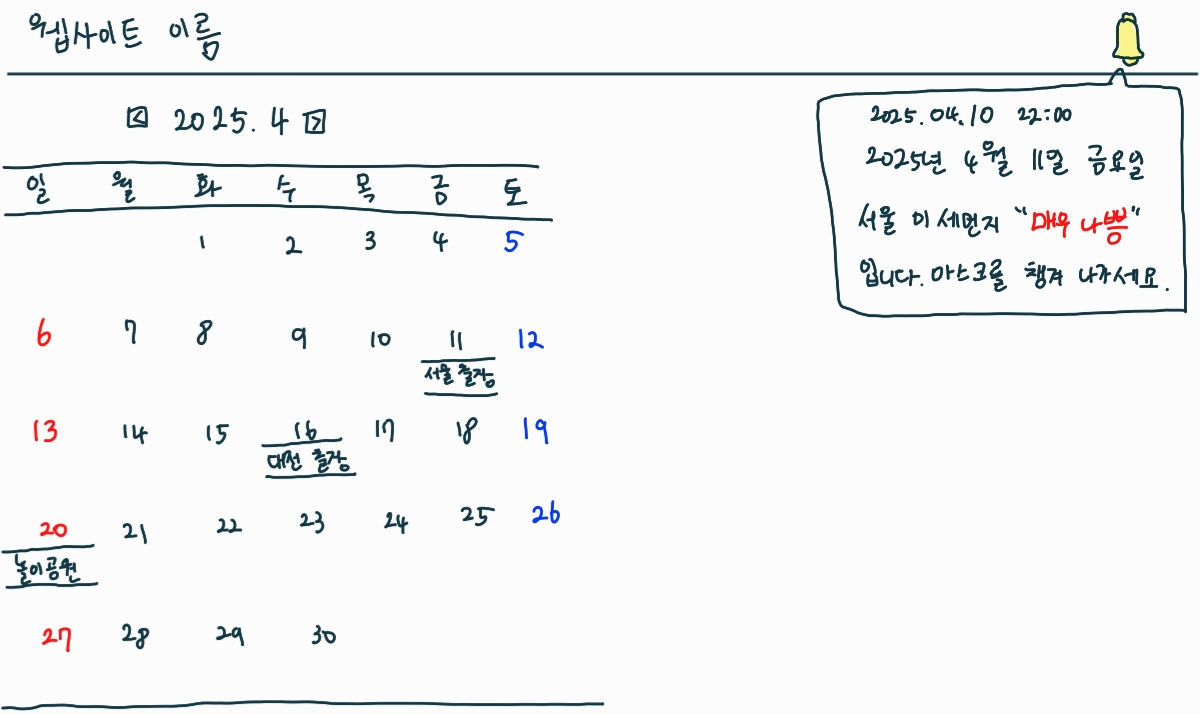 웹사이트 이름
< 2025. 4 >
일 월 화 수 목 금 토
1 2 3 4 5
6 7 8 9 10 11 12
서울 출장
13 14 15 16 17 18 19
대전 출장
20 21 22 23 24 25 26
놀이공원
27 28 29 30
2025.04.10 22:00
2025년 4월 11일 금요일
서울 미세먼지 "매우 나쁨"
입니다. 마스크를 챙겨 나가세요.